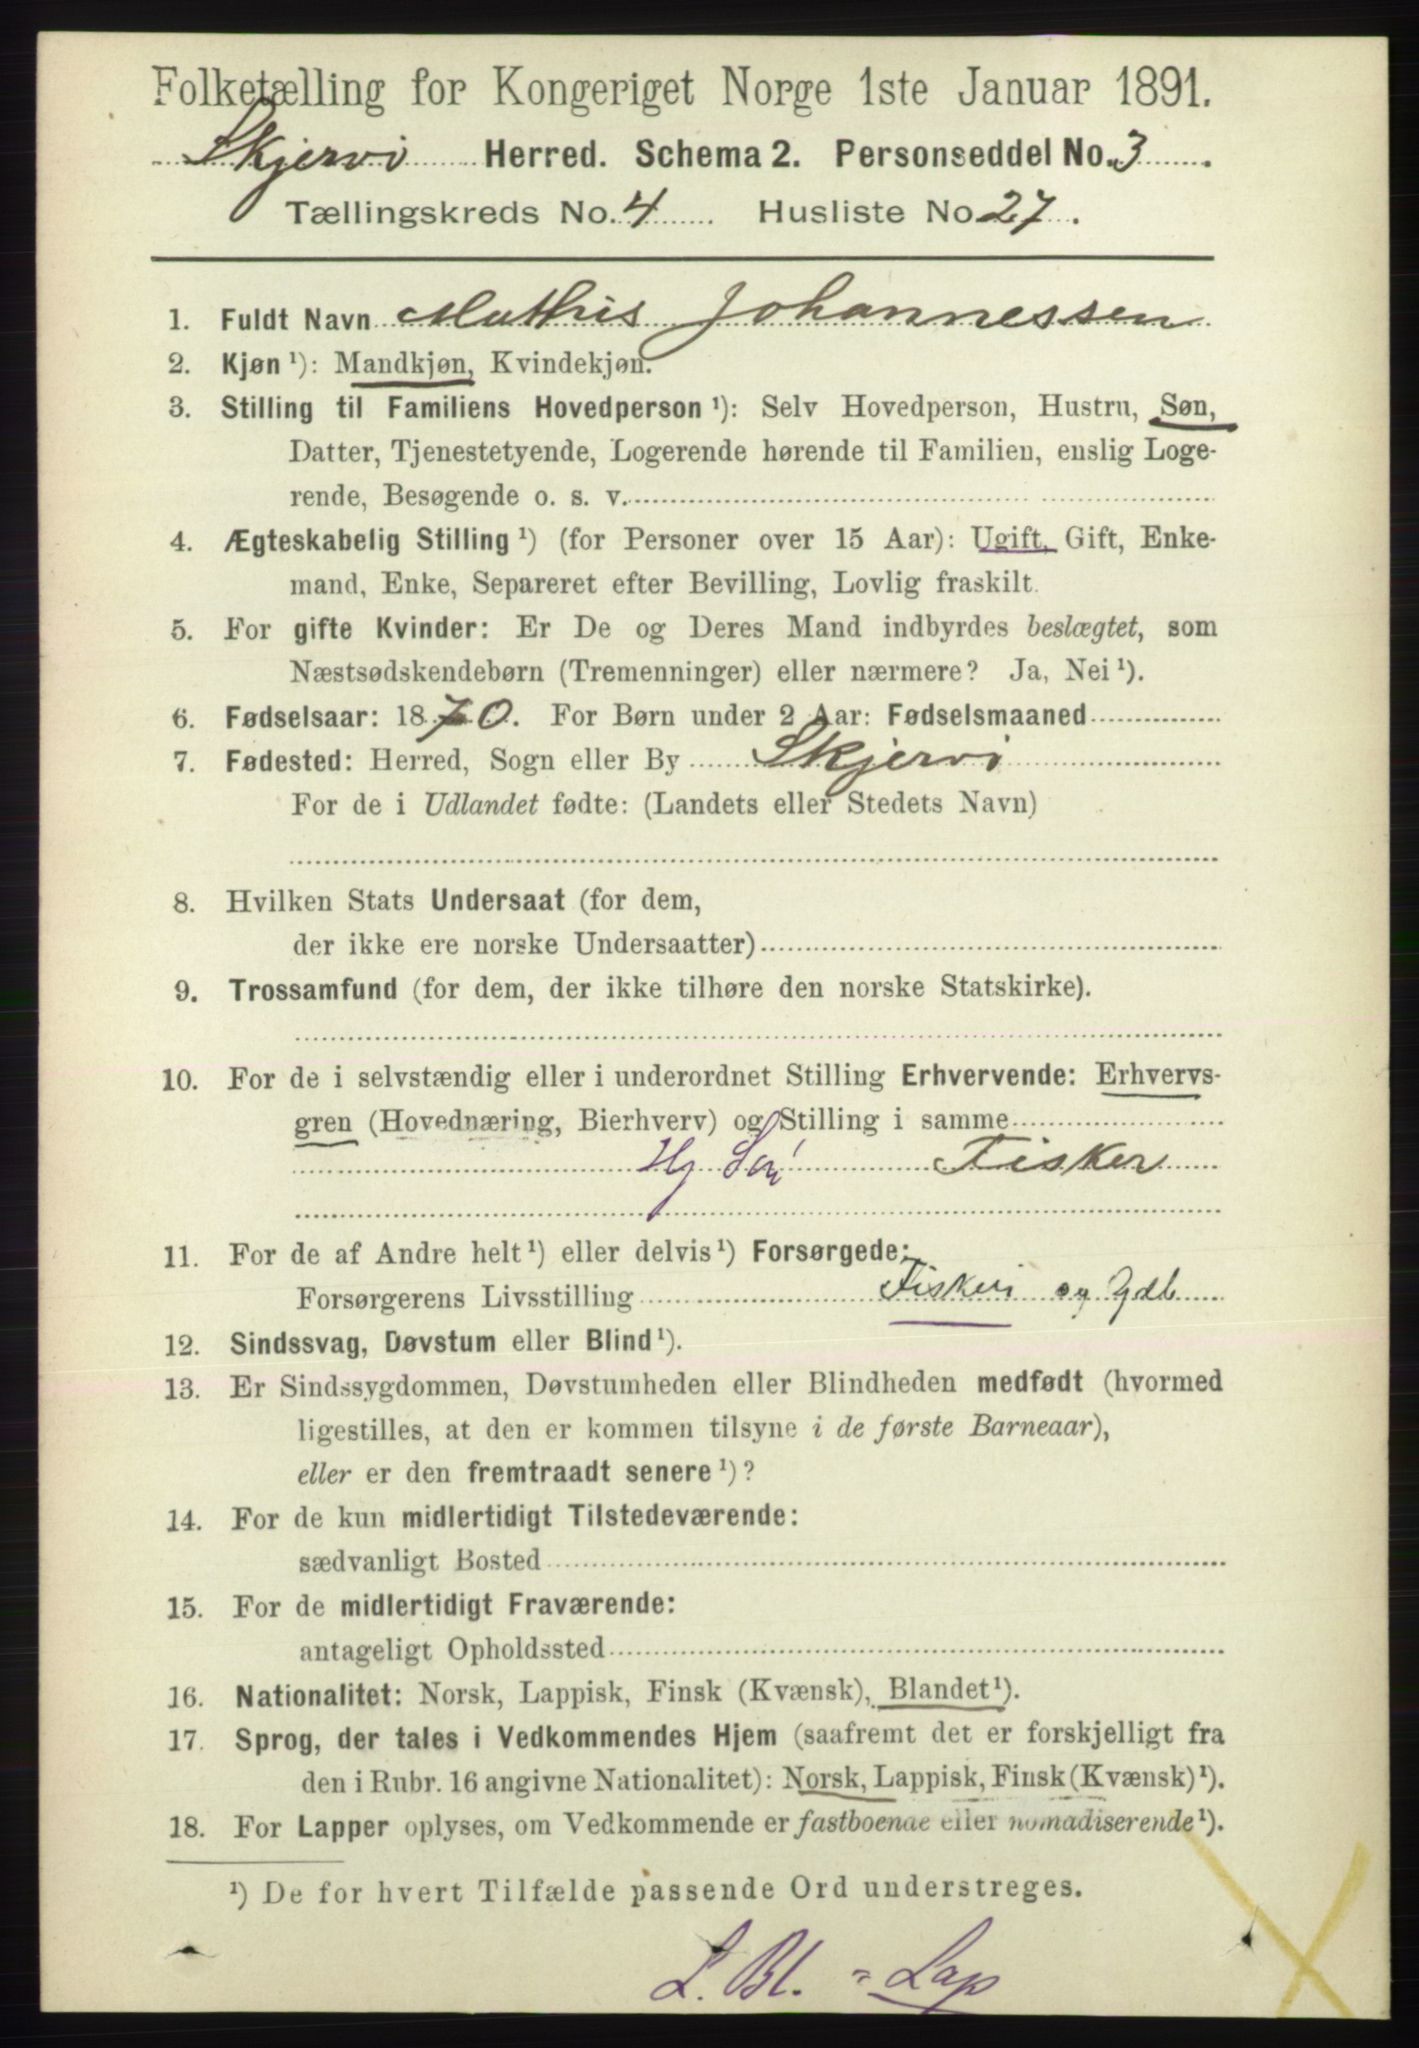 Folketælling for Kongeriget Norge 1ste Januar 1891.
Skjervö Herred. Schema 2. Personseddel No. 3.
Tællingskreds No. 4 Husliste No 27.
1. Fuldt Navn Mathis Johannessen
2. Kjøn ¹): Mandkjøn, Kvindekjøn.
3. Stilling til Familiens Hovedperson ¹): Selv Hovedperson, Hustru, Søn,
Datter, Tjenestetyende, Logerende hørende til Familien, enslig Loge-
rende, Besøgende o. s. v.
4. Ægteskabelig Stilling ¹) (for Personer over 15 Aar): Ugift, Gift, Enke-
mand, Enke, Separeret efter Bevilling, Lovlig fraskilt.
5. For gifte Kvinder: Er De og Deres Mand indbyrdes beslægtet, som
Næstsødskendebørn (Tremenninger) eller nærmere? Ja, Nei ¹).
6. Fødselsaar: 1870. For Børn under 2 Aar: Fødselsmaaned
7. Fødested: Herred, Sogn eller By Skjervö
For de i Udlandet fødte: (Landets eller Stedets Navn)
8. Hvilken Stats Undersaat (for dem,
der ikke ere norske Undersaatter)
9. Trossamfund (for dem, der ikke tilhøre den norske Statskirke).
10. For de i selvstændig eller i underordnet Stilling Erhvervende: Erhvervs-
gren (Hovednæring, Bierhverv) og Stilling i samme
Hj Sön Fisker
11. For de af Andre helt ¹) eller delvis ¹) Forsørgede:
Forsørgerens Livsstilling Fiskeri og Gdb
12. Sindssvag, Døvstum eller Blind ¹).
13. Er Sindssygdommen, Døvstumheden eller Blindheden medfødt (hvormed
ligestilles, at den er kommen tilsyne i de første Barneaar),
eller er den fremtraadt senere ¹)?
14. For de kun midlertidigt Tilstedeværende:
sædvanligt Bosted
15. For de midlertidigt Fraværende:
antageligt Opholdssted
16. Nationalitet: Norsk, Lappisk, Finsk (Kvænsk), Blandet ¹).
17. Sprog, der tales i Vedkommendes Hjem (saafremt det er forskjelligt fra
den i Rubr. 16 angivne Nationalitet): Norsk, Lappisk, Finsk (Kvænsk) ¹).
18. For Lapper oplyses, om Vedkommende er fastboende eller nomadiserende ¹).
¹) De for hvert Tilfælde passende Ord understreges.
L. Bl. = Lap